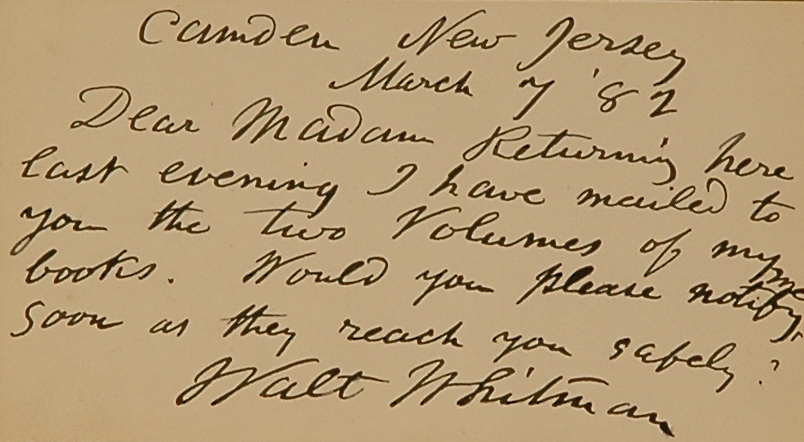 Camden New Jersey
March 7 '82
Dear Madam Returning here
last evening I have mailed to
you the two Volumes of my
books. Would you please notify me
soon as they reach you safely?
Walt Whitman